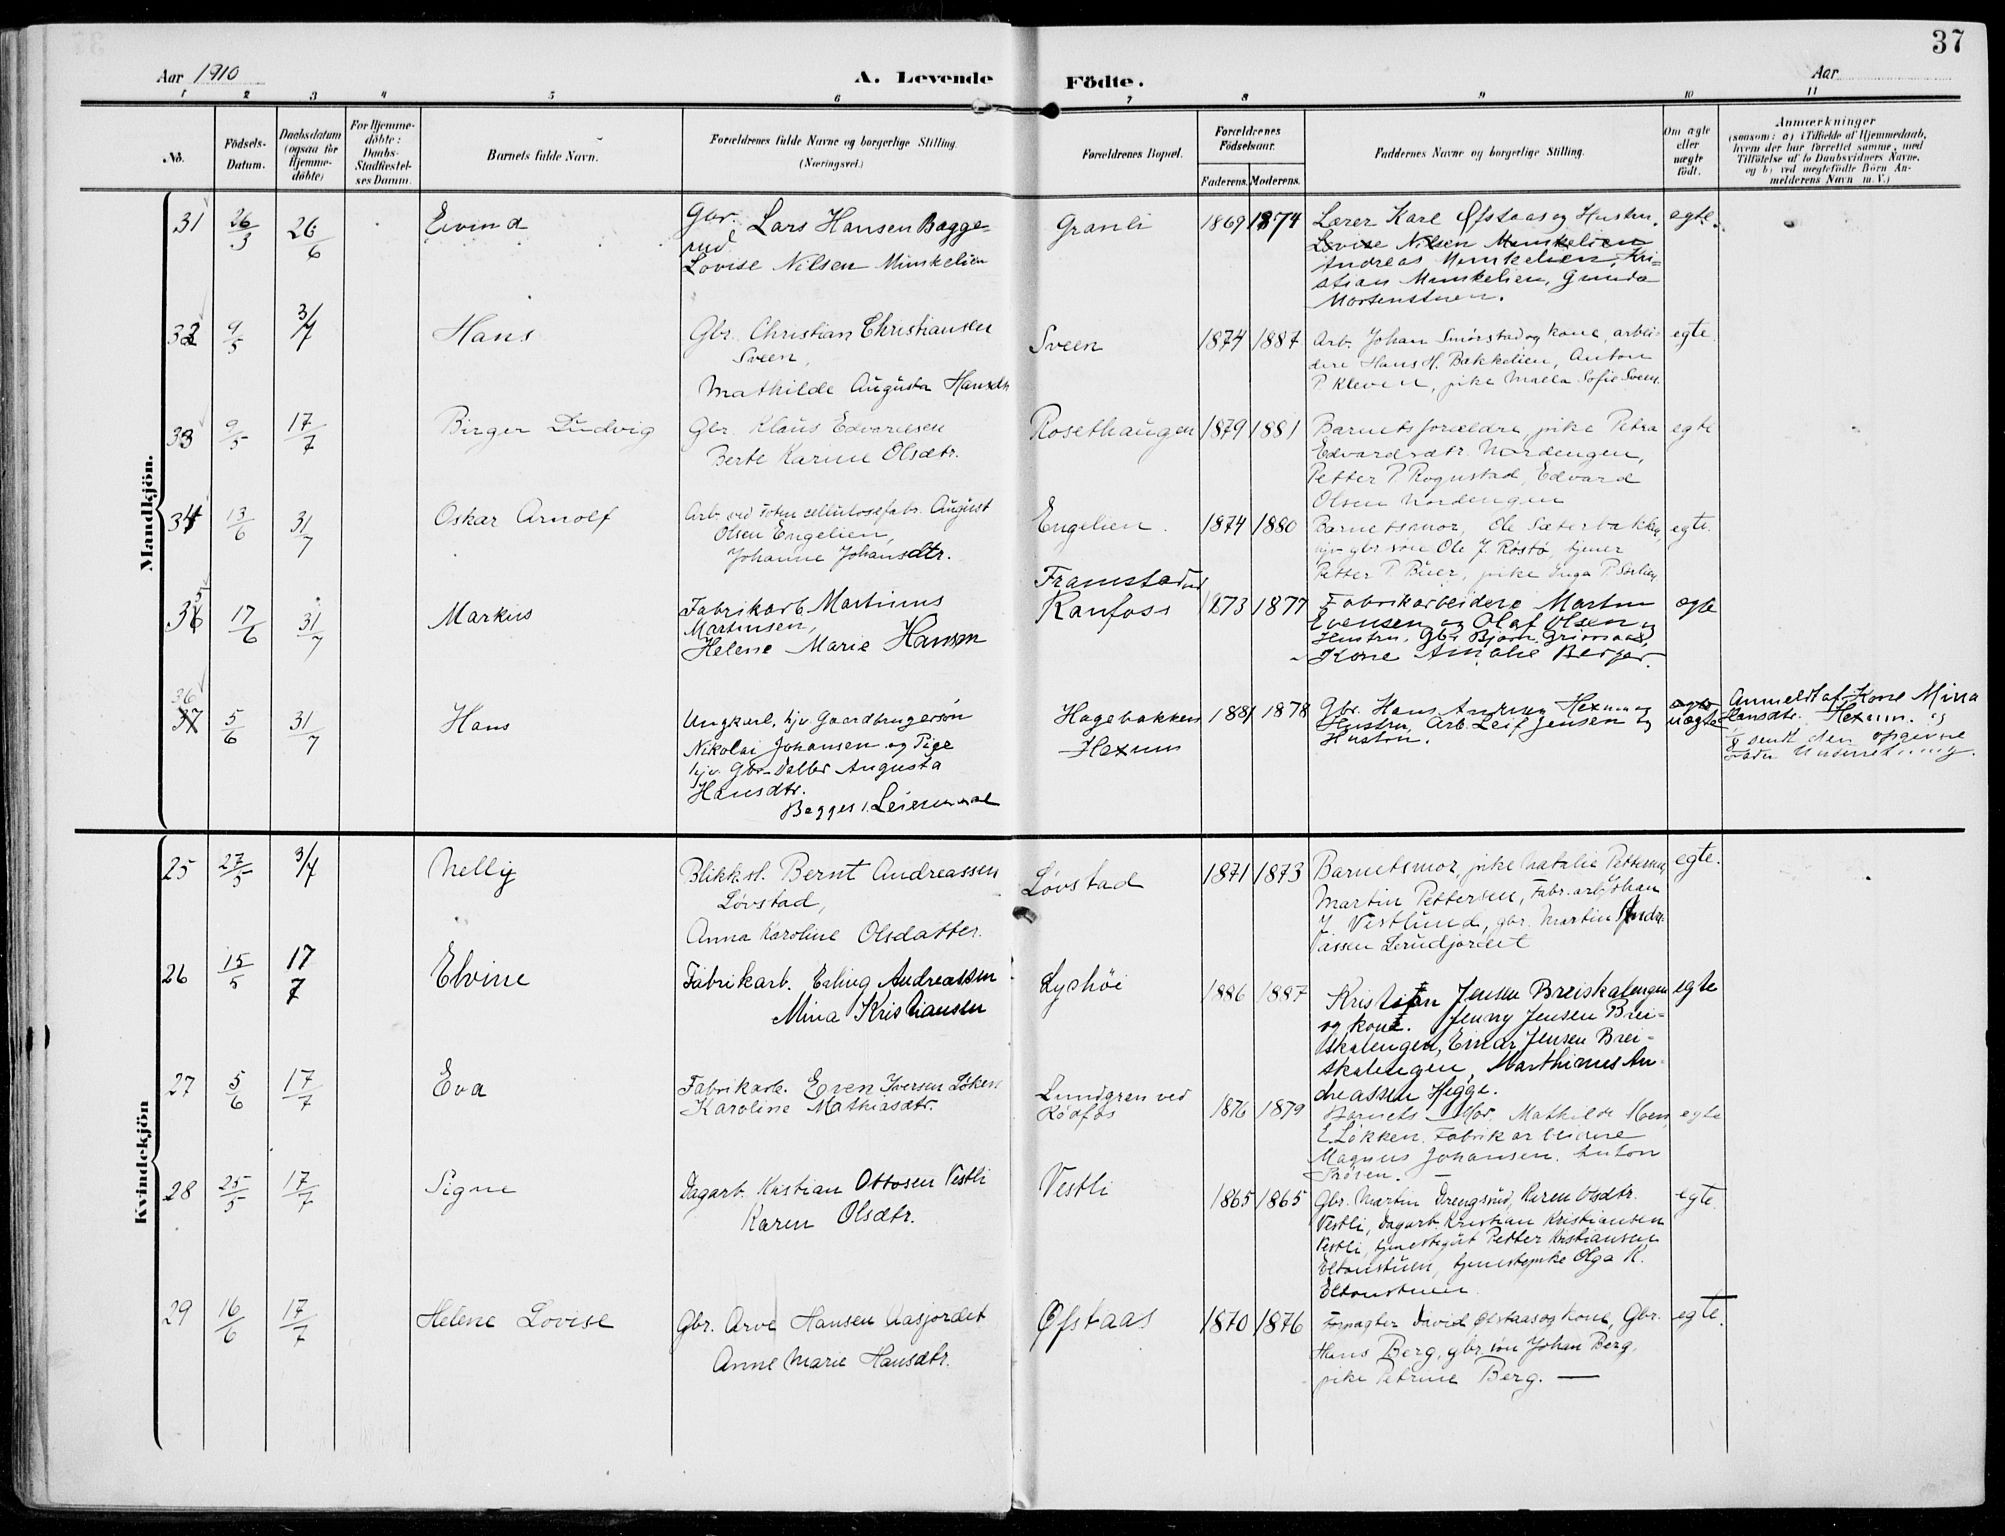 37
Aar 1910
A. Levende Födte.
Aar
1 2 3 4 5 6 7 8 9 10 11
No.
Födsels-
Datum.
Daabsdatum
(ogsaa for
Hjemme-
döbte)
For Hjemme-
döbte:
Daabs-
Stadfæstel-
ses Datum.
Barnets fulde Navn.
Forældrenes fulde Navne og borgerlige Stilling.
(Næringsvei.)
Forældrenes Bopæl.
Forældrenes
Födselsaar.
Faderens. Moderens.
Faddernes Navne og borgerlige Stilling.
Om ægte
eller
uægte
födt.
Anmærkninger
(saasom: a) i Tilfælde af Hjemmedaab,
hvem der har forrettet samme, med
Tilföielse af to Daabsvidners Navne,
og b) ved uegtefödte Börn An-
melderens Navn m. V.)
Mandkjön.
31 26/3 26/6 Eivind
Gbr. Lars Hansen Bagge-
rud
Lovise Nilsen Munkelien
Granli 1869 1874
Lærer Karl Øfstaas og Hustru.
Lovise Nilsen Munkelien
Andreas Munkelien, Kri-
stian Munkelien, Gunda
Mortenstuen.
egte.
32 9/5 3/7 Hans
Gbr. Christian Christiansen
Sveen,
Mathilde Augusta Hansdtr
Sveen 1874 1887
Arb. Johan Smørstad og kone, arbei-
dere Hans H. Bakkelien, Anton
P. Kleven, pike Maella Sofie Sveen.
egte.
33 9/5 17/7 Birger Ludvig
Gbr. Klaus Edvardsen
Berte Karine Olsdtr.
Rosethaugen 1879 1881
Barnets forældre, pike Petra
Edvardsdtr. Nordengen,
Petter P. Rognstad, Edvard
Olsen Nordengen
egte
34 13/6 31/7 Oskar Arnolf
Arb. ved Toten cellulosefabr. August
Olsen Engelien,
Johanne Johansdtr.
Engelien. 1874 1880
Barnetsmor, Ole Sæterbakken,
hjv. gbr.søn Ole J. Røstø, tjener
Petter P. Buer, pike Inga P.
egte.
35 17/6 31/7 Markus
Fabrikarb. Martinius
Martinsen,
Helene Marie Hansen
Framstad ved
Raufoss 1873 1877
Fabrikarbeidere Martin
Evensen og Olaf Olsen og
Hustru, Gbr. Bjørn Grimaas,
Kone Amalie Berger.
egte
36
37 5/6 31/7 Hans
Ungkarl, hjv. Gaardbrugersøn
Nikolai Johansen og Pige
hjv. Gbr.-Datter Augusta
Hansdtr.
Begges 1. Leiermaal
Hagebakken
Hexum
1881 1878
Gbr. Hans Andersen Hexum og
Hustru, Arb. Leif Jensen og
Hustru.
uægte
Anmeldt af Kone Mina
Hansdtr. Hexum. og
sendt den opgivne
Fader Underretning.
Kvindekjön
25 27/5 3/7 Nelly
Blikksl. Bernt Andreassen
Løvstad,
Anna Karoline Olsdatter.
Løvstad 1871 1873
Barnetsmor, pike Natalie Pettersen,
Martin Pettersen, Fabr.arb. Johan
J. Vestlund, gbr. Martin Andre-
assen Lerudjordet
egte.
26 15/5 17/7 Elvine
Fabrikarb. Erling Andreassen
Mina Kristiansen
Lyshöi 1886 1887
Kristian Jensen Breiskalengen
og kone. Jenny Jensen Brei-
skalengen, Einar Jensen Brei-
skalengen, Marthinus An-
dreassen Hegge.
egte
27 5/6 17/7 Eva
Fabrikarb. Even Iversen Løken
Karoline Mathiasdtr.
Lundgren ved
Rödfos 1876 1879
Barnets Mor, Mathilde
E. Løkken. Fabrikarbeidere
Magnus Johansen. Anton
Bröten.
egte
28 25/5 17/7 Signe
Dagarb. Kristian Ottosen Vestli
Karen Olsdtr.
Vestli 1865 1865
Gbr. Martin Drengsrud, Karen Olsdtr.
Vestli, Dagarb. Kristian Kristiansen
Vestli, tjenestegut Petter Kristiansen
Eltonstuen, tjenestepike Olga K.
Eltonstuen
egte.
29 16/6 17/7 Helene Lovise
Gbr. Arve Hansen Aasjordet
Anne Marie Hansdtr.
Øfstaas 1870 1876
Forpagter David Øfstaas og kone, Gbr.
Hans Berg, gbr.søn Johan Berg,
pike Petrine Berg. —
egte.